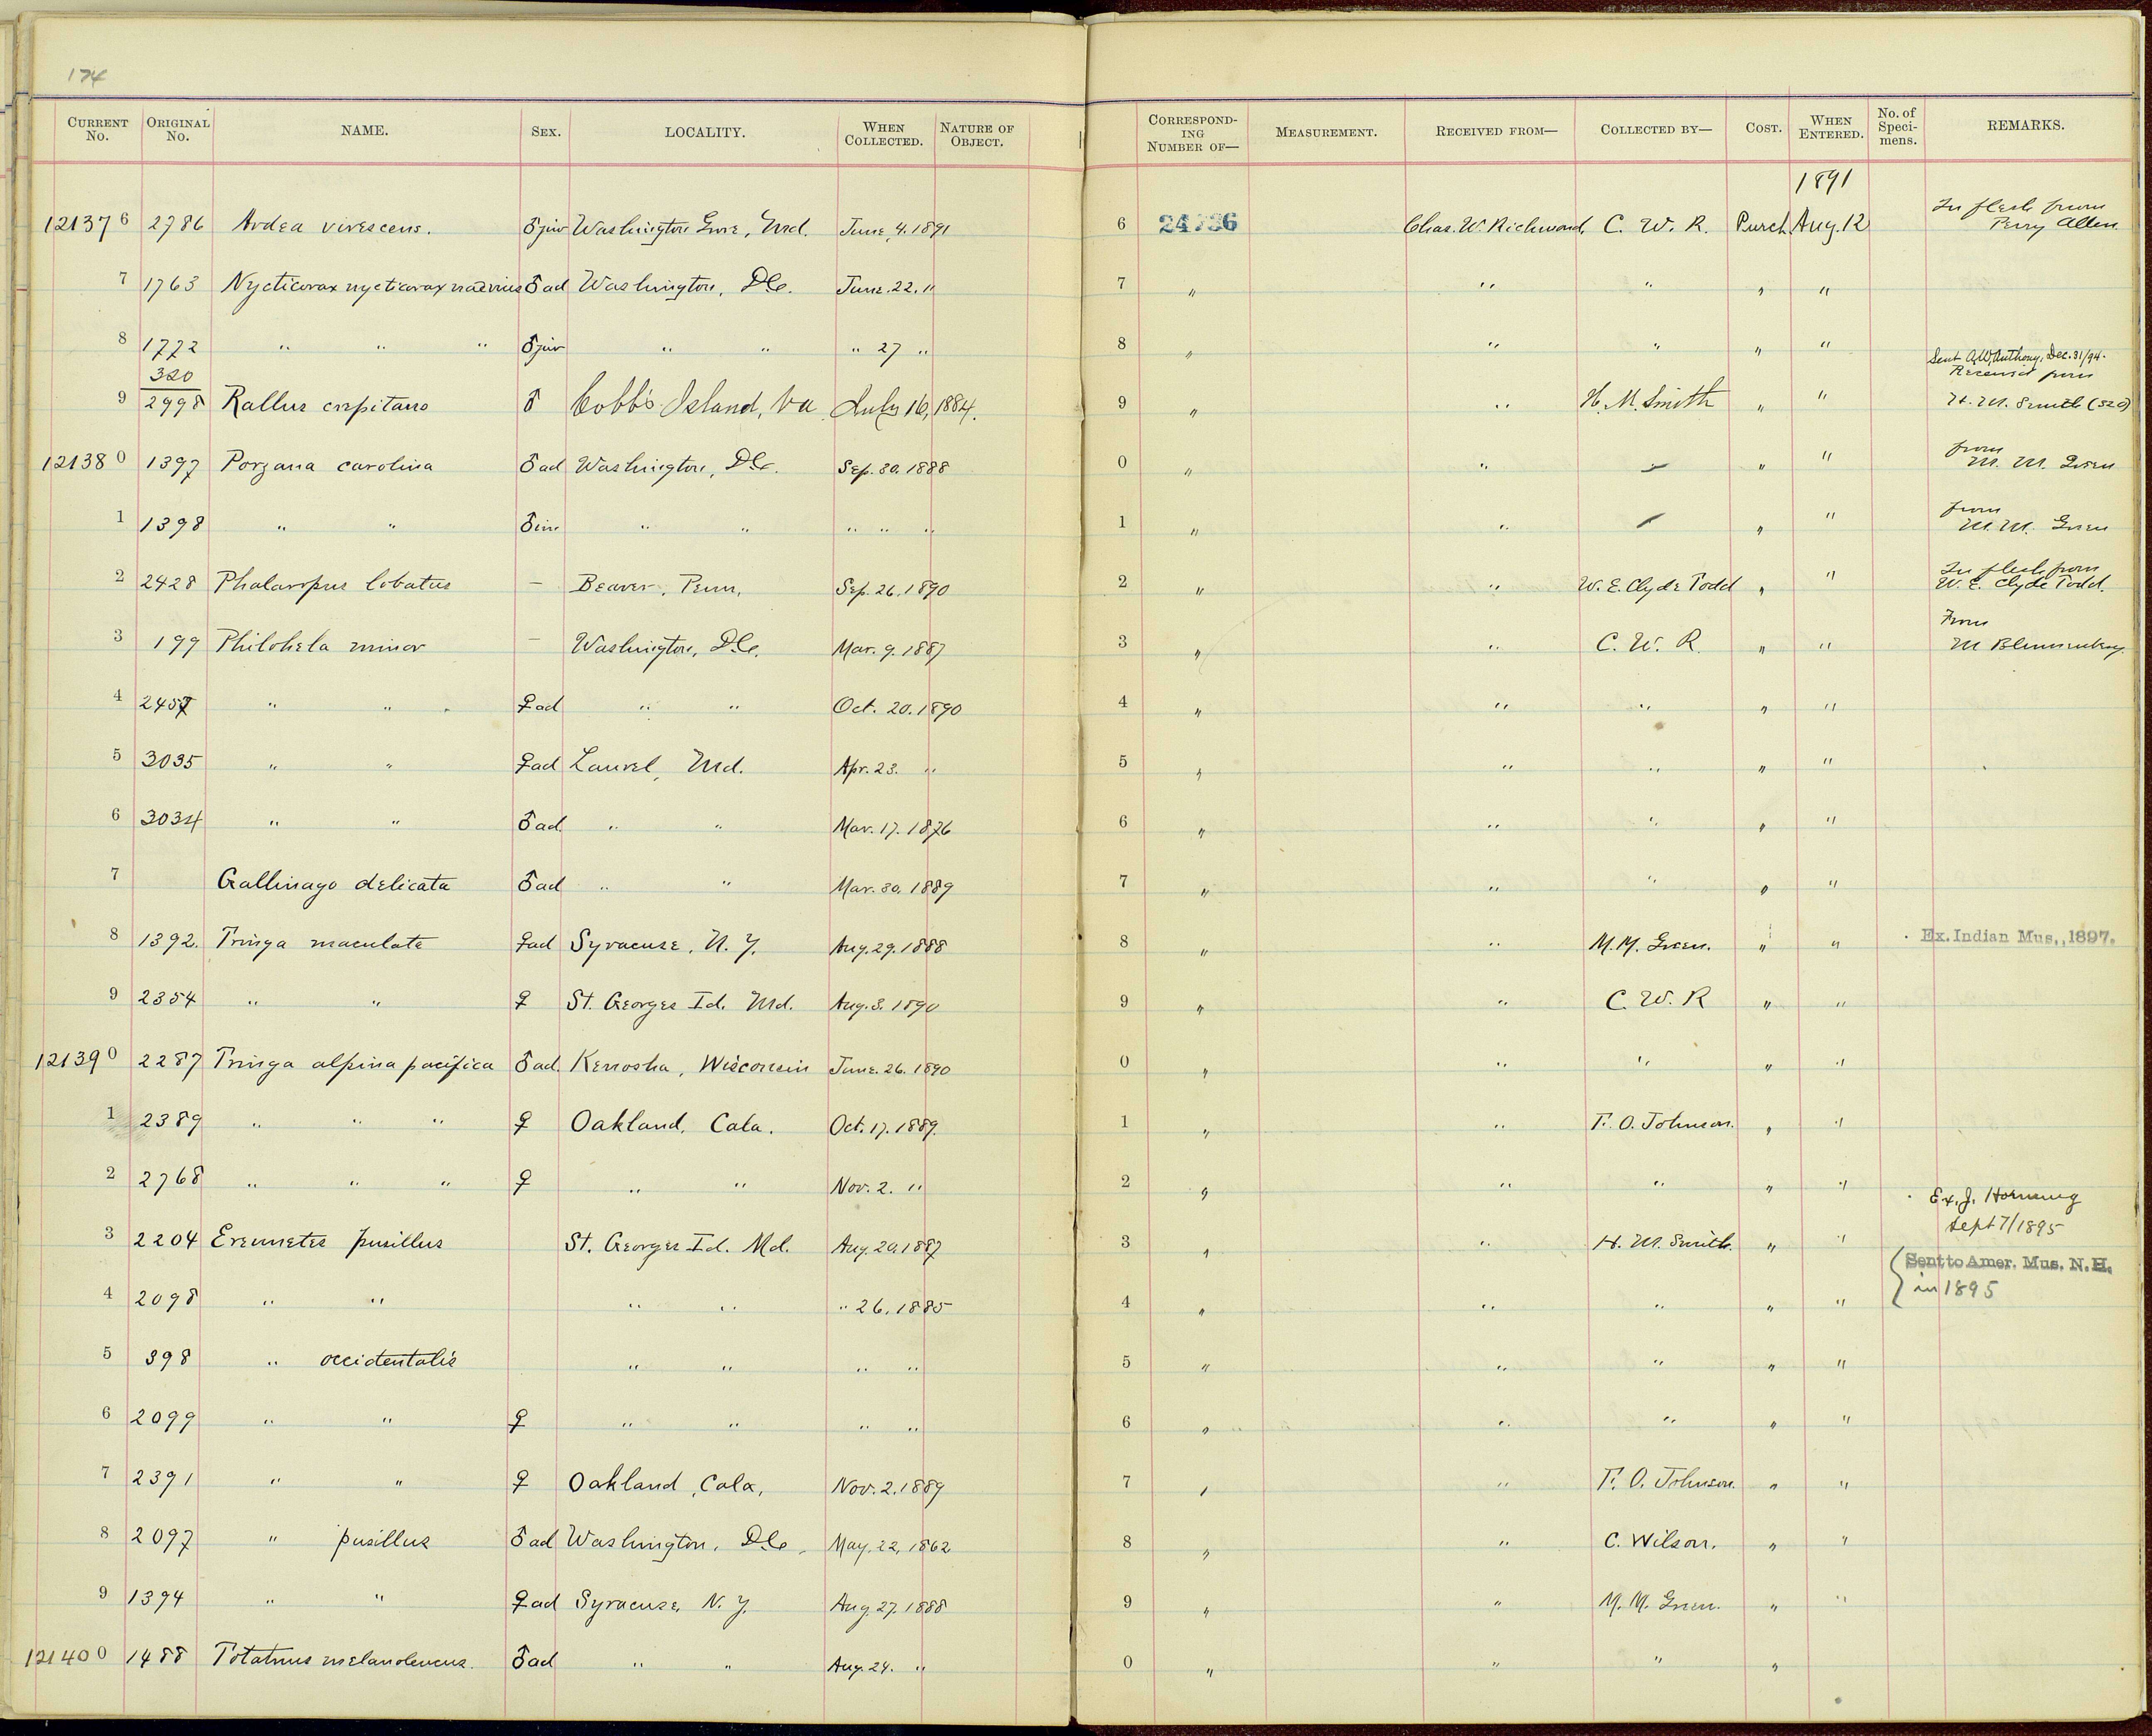 174
CURRENT No. ORIGINAL No. NAME. SEX. LOCALITY. WHEN COLLECTED. NATURE OF OBJECT. CORRESPOND-ING NUMBER OF— MEASUREMENT. RECEIVED FROM— COLLECTED BY— COST. WHEN ENTERED. No. of Speci-mens. REMARKS.
1891
121376 2786 Ardea virescens. ♂ juv Washington Grove, Md. June, 4. 1891 6 24736 Chas. W. Richmond, C. W. R. Purch. Aug. 12 In flesh from Perry Allen
7 1763 Nycticorax nycticorax naevius ♂ ad Washington, D.C. June. 22. " 7 " " " " "
8 1772 " " " ♂ juv " " " 27 " 8 " " " " "
Sent A.W. Anthony, Dec. 31/94.
9 320 2998 Rallus crepitans ♂ Cobb's Island, Va. July 16, 1884. 9 " " H. M. Smith " " Received from H. M. Smith (320)
121380 1397 Porzana carolina ♂ ad Washington, D.C. Sep. 30. 1888 0 " " " " from M. M. Green
1 1398 " " ♂ im " " " " " 1 " " " " from M. M. Green
2 2428 Phalaropus lobatus – Beaver, Penn. Sep. 26. 1890 2 " " W. E. Clyde Todd " " In flesh from W. E. Clyde Todd.
3 199 Philohela minor – Washington, D.C. Mar. 9. 1887 3 " " C. W. R. " " From M
4 2457 " " ♀ ad " " Oct. 20. 1890 4 " " " " "
5 3035 " " ♀ ad Laurel, Md. Apr. 23. " 5 " " " " "
6 3034 " " ♂ ad. " " Mar. 17. 1876 6 " " " " "
7 Gallinago delicata ♂ ad " " Mar. 30. 1889 7 " " " " "
8 1392. Tringa maculata ♀ ad Syracuse, N. Y. Aug. 29. 1888 8 " " M. M. Green. " " Ex. Indian Mus., 1897.
9 2354 " " ♀ St. Georges Id. Md. Aug. 3. 1890 9 " " C. W. R " "
121390 2287 Tringa alpina pacifica ♂ ad. Kenosha, Wisconsin June. 26. 1890 0 " " " " "
1 2389 " " " ♀ Oakland, Cala. Oct. 17. 1889. 1 " " T. O. Johnson. " "
2 2768 " " " ♀ " " Nov. 2. " 2 " " " " " Ex. J. Hornung Sept 7/1895
3 2204 Ereunetes pusillus St. Georges Id. Md. Aug 20, 1887 3 " " H. M. Smith. " " Sent to Amer. Mus. N. H.
4 2098 " " " " " 26, 1885 4 " " " " " in 1895
5 398 " occidentalis " " " " 5 " " " " "
6 2099 " " ♀ " " " " 6 " " " " "
7 2391 " " ♀ Oakland, Cala, Nov. 2. 1889 7 " " T. O. Johnson. " "
8 2097 " pusillus ♂ ad Washington, D.C. May. 22, 1862 8 " " C. Wilson. " "
9 1394 " " ♀ ad Syracuse, N. Y. Aug. 27. 1888 9 " " M. M. Green. " "
121400 1488 Totanus melanoleucus. ♂ ad " " Aug. 24. " 0 " " " "